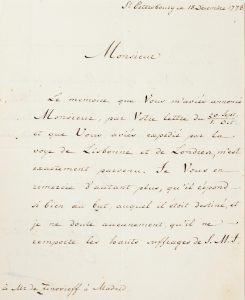 St Petersbourg ce 18 Decembre 1778
Monsieur
Le memoire que Vous m'aviés annoncé
Monsieur, par Votre lettre du
et que Vous aviés expedié par la
voye de Lisbonne et de Londres, m'est
exactement parvenu. Je Vous en
remercie d'autant plus, qu'il repond
si bien au but, auquel il etoit destiné, et
je ne doute aucunement, qu'il ne
remporte les hauts suffrages de S. M. I.
à Mr. de Zinovieff à Madrid.